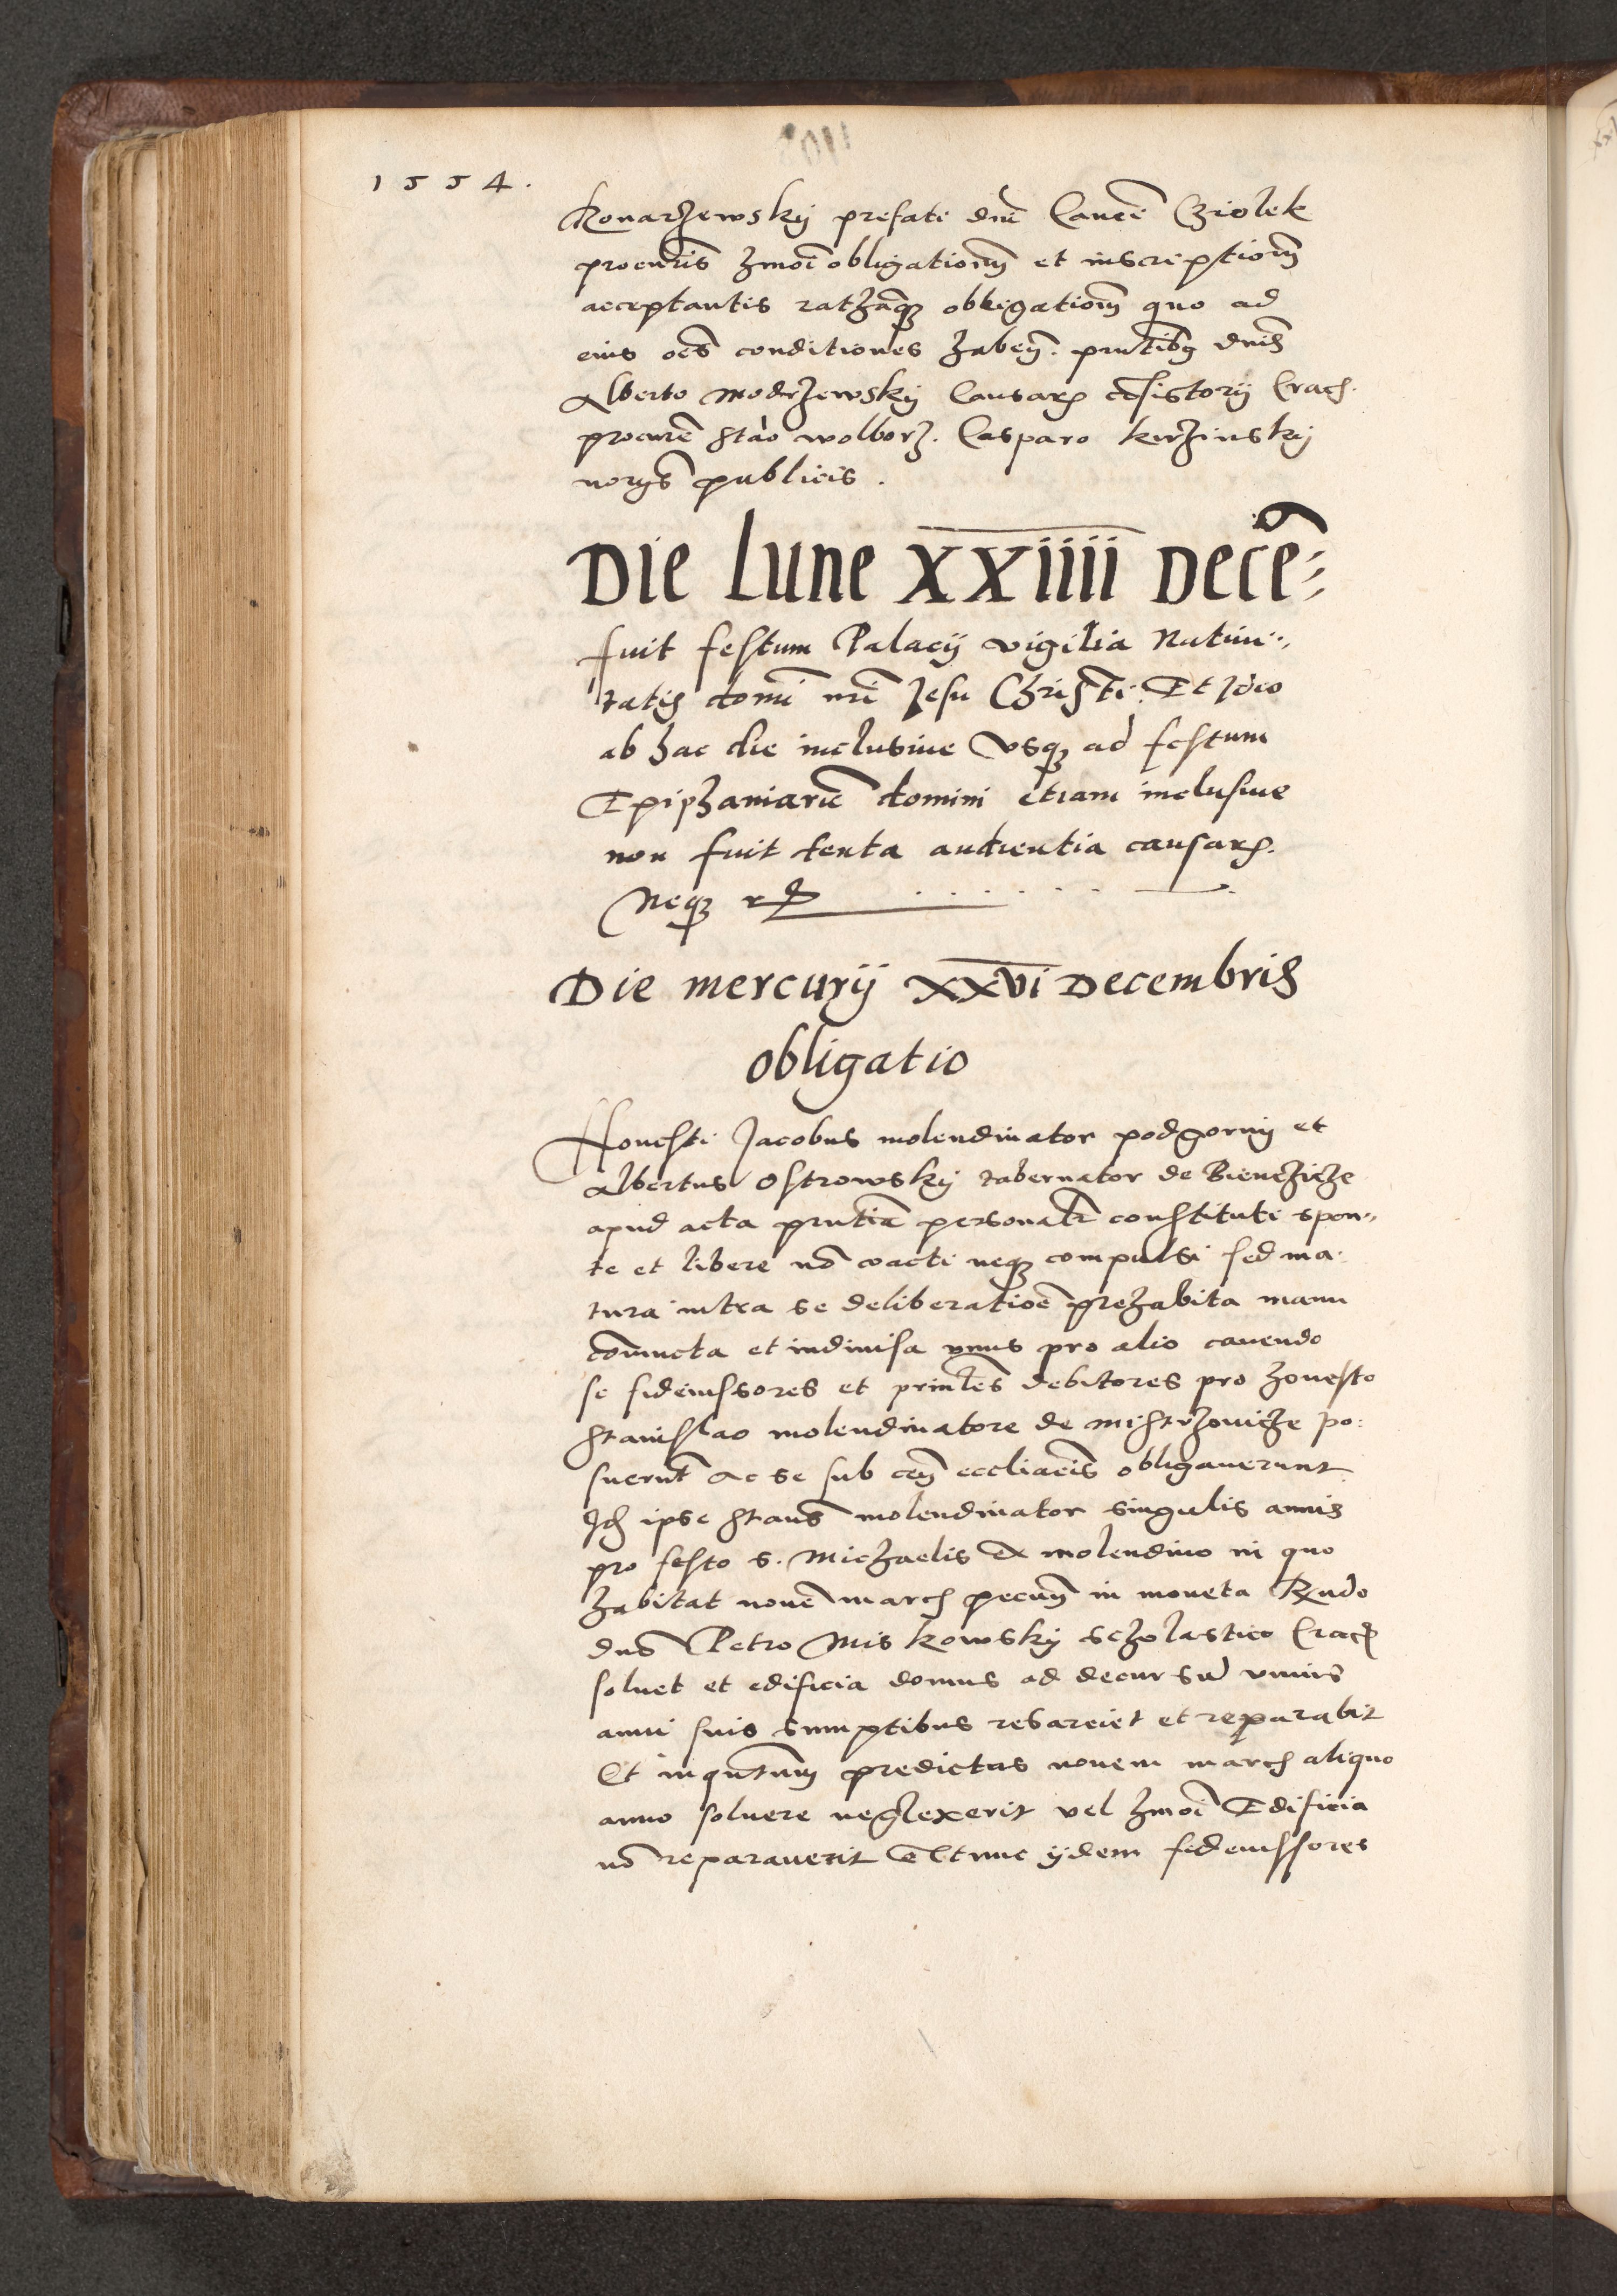 1554.
Konarzewskÿ prefati dni Laurẽ Cziolek
procuris hmoi obligationem et inscriptionem
acceptantis rathaq obligationem quo ad
eius oẽs conditiones habeñ. pñtibus dnis
Alberto Modrzewskÿ Causarum cõsistorÿ Crac.
procurẽ Stão Wolborz. Casparo Kirzinskÿ
norÿs publicis.
Die Lune XXIIII Decẽ
fuit festum Palacÿ vigilia Natiui
tatis domĩ nrĩ Jesu Christi. Et Ideo
ab hac die inclusiue vsq ad festum
Epiphaniarũ domini etiam inclusiue
non fuit tenta audientia causarum.
Neq rñ
Die mercurÿ XXVI Decembris
obligatio
Honesti Jacobus molendinator podgornÿ et
Albertus Ostrowskÿ tabernator de Bienczicze
apud acta pñtia personalr constituti spon
te et libere nõ coacti neq compulsi sed ma
tura intra se deliberatioẽ prehabita manu
coniuncta et indiuisa vnus pro alio cauendo
se fideiussores et prinĉles debitores pro honesto
Stanislao molendinatore de Mistrzovicze po
suerũt ac se sub ceñ eccliacis obligauerunt
Iđ ipse Stanis molendinator singulis annis
pro festo S. Michaelis ex molendino in quo
habitat nouẽ marcs pecuñ in moneta Rndo
dno Petro Miskowskÿ scholastico Crac
soluet et edificia domus ad decursũ vnius
anni suis sumptibus resarciet et reparabit
Et inqntum predictas nouem marcs aliquo
anno soluere neglexerit vel hmoi Edificia
nõ reparauerit extunc ÿdem fideiussores